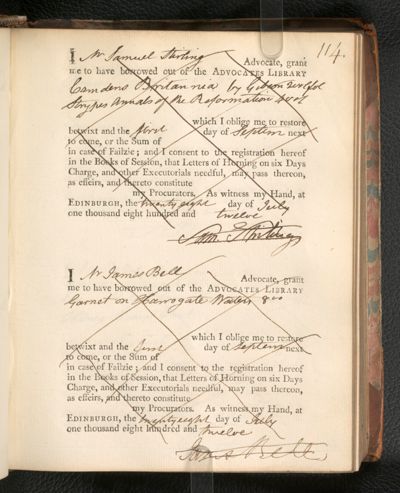 114.
I Mr Samuel Stirling Advocate, grant
me to have borrowed out of the ADVOCATES LIBRARY
Camdens Britannia by Gibson 2 vol fol
Strypes Annals of the Reformation 4 vol
which I oblige me to restore
betwixt and the first day of Septem next
to come, or the Sum of
in case of Failzie; and I consent to the registration hereof
in the Books of Session, that Letters of Horning on six Days
Charge, and other Executorials needful, may pass thereon,
as effeirs, and thereto constitute
my Procurators. As witness my Hand, at
EDINBURGH, the twenty eight day of July
one thousand eight hundred and twelve
Sam Stirling
I Mr James Bell Advocate, grant
me to have borrowed out of the ADVOCATES LIBRARY
Garnet on Harrogate Waters 8vo
which I oblige me to restore
betwixt and the first day of Septem next
to come, or the Sum of
in case of Failzie; and I consent to the registration hereof
in the Books of Session, that Letters of Horning on six Days
Charge, and other Executorials needful, may pass thereon,
as effeirs, and thereto constitute
my Procurators. As witness my Hand, at
EDINBURGH, the twenty eight day of July
one thousand eight hundred and twelve
James Bell